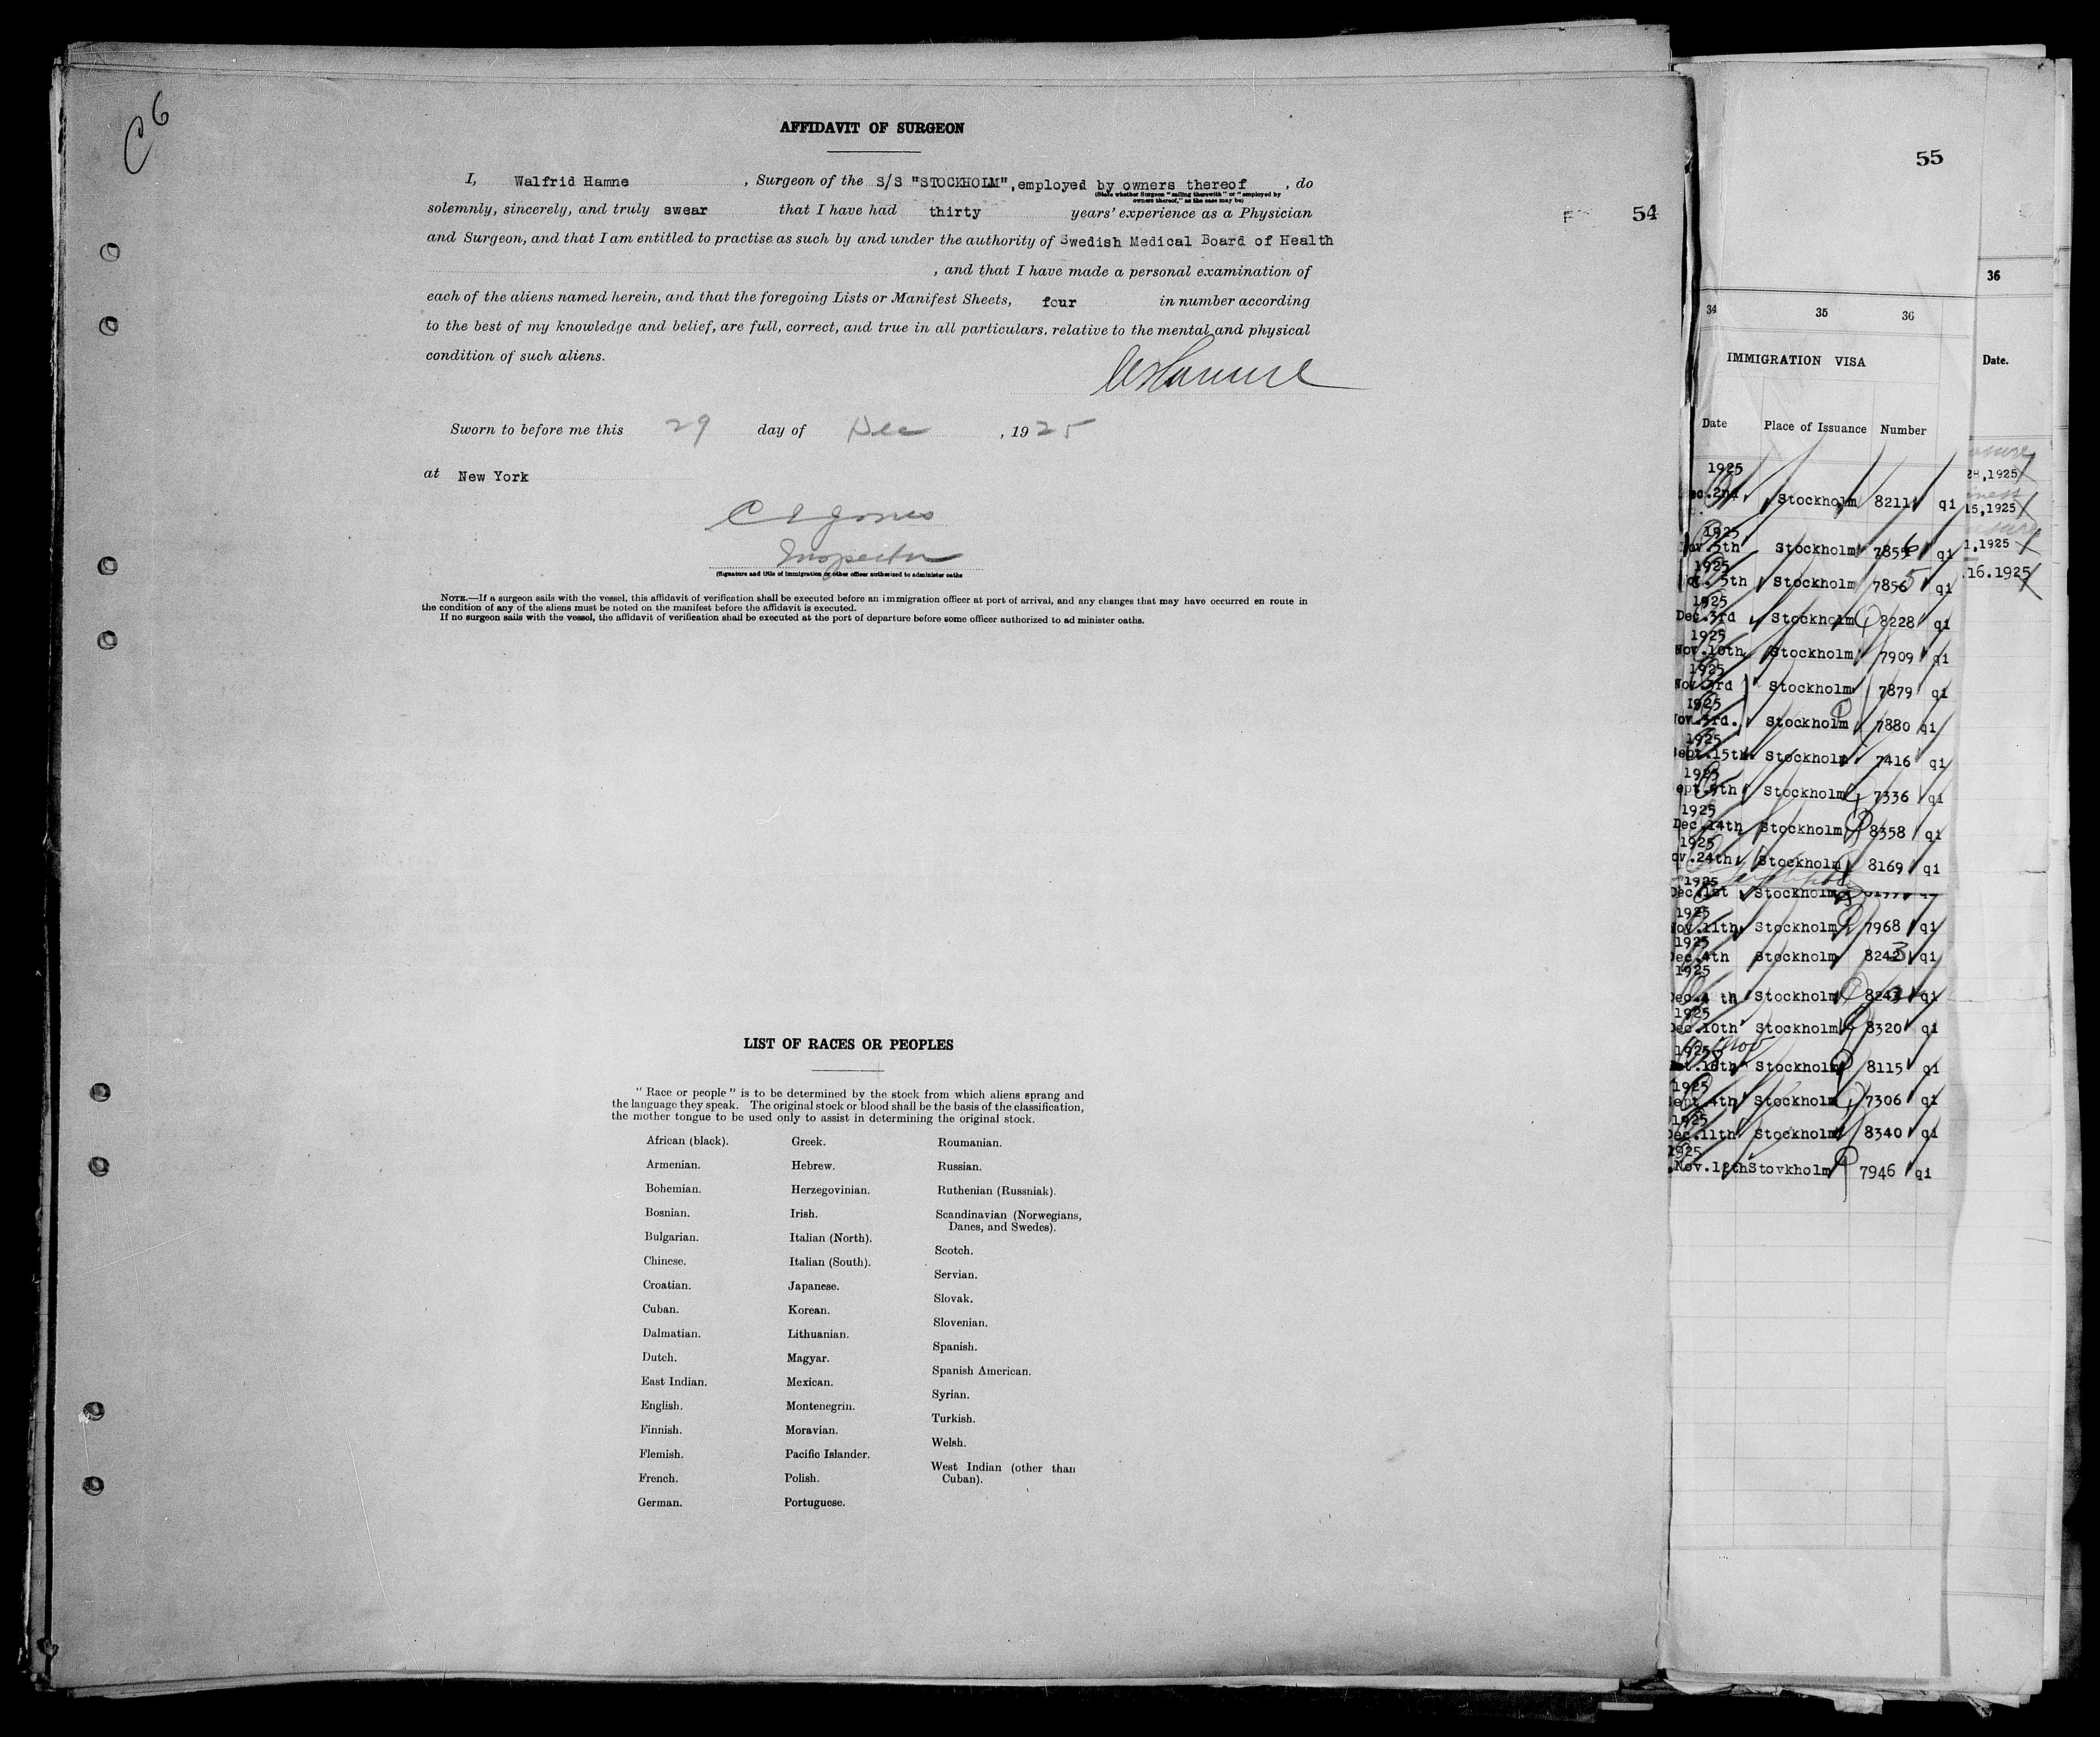 C 6
AFFIDAVIT OF SURGEON
I, Walfrid Hamne , Surgeon of the S/S "STOCKHOLM", employed by owners thereof , do
(State whether Surgeon "sailing therewith" or "employed by
owners thereof," as the case may be)
solemnly, sincerely, and truly swear that I have had thirty years' experience as a Physician
and Surgeon, and that I am entitled to practise as such by and under the authority of Swedish Medical Board of Health
, and that I have made a personal examination of
each of the aliens named herein, and that the foregoing Lists or Manifest Sheets, four in number according
to the best of my knowledge and belief, are full, correct, and true in all particulars, relative to the mental and physical
condition of such aliens.
Sworn to before me this 29 day of Dec , 1925
at New York
C I Jones
Inspector
(Signature and title of immigration or other officer authorized to administer oaths
NOTE.—If a surgeon sails with the vessel, this affidavit of verification shall be executed before an immigration officer at port of arrival, and any changes that may have occurred en route in
the condition of any of the aliens must be noted on the manifest before the affidavit is executed.
If no surgeon sails with the vessel, the affidavit of verification shall be executed at the port of departure before some officer authorized to ad minister oaths.
LIST OF RACES OR PEOPLES
"Race or people" is to be determined by the stock from which aliens sprang and
the language they speak. The original stock or blood shall be the basis of the classification,
the mother tongue to be used only to assist in determining the original stock.
African (black).
Armenian.
Bohemian.
Bosnian.
Bulgarian.
Chinese.
Croatian.
Cuban.
Dalmatian.
Dutch.
East Indian.
English.
Finnish.
Flemish.
French.
German.
Greek.
Hebrew.
Herzegovinian.
Irish.
Italian (North).
Italian (South).
Japanese.
Korean.
Lithuanian.
Magyar.
Mexican.
Montenegrin.
Moravian.
Pacific Islander.
Polish.
Portuguese.
Roumanian.
Russian.
Ruthenian (Russniak).
Scandinavian (Norwegians,
Danes, and Swedes).
Scotch.
Servian.
Slovak.
Slovenian.
Spanish.
Spanish American.
Syrian.
Turkish.
Welsh.
West Indian (other than
Cuban).
54
55
34 35 36
IMMIGRATION VISA
Date Place of Issuance Number
1925
ec.2nd Stockholm 8211 qi
1925
Nov.5th Stockholm 7855 qi
1925
5th Stockholm 7856 5 qi
1925
Dec.3rd Stockholm 8228 qi
1925
Nov.10th Stockholm 7909 qi
1925
Nov.3rd Stockholm 7879 qi
1925
Nov.3rd. Stockholm 7880 qi
1925
Sept.15th Stockholm 7416 qi
1925
ept.9th Stockholm 7336 qi
1925
Dec.14th Stockholm 8358 qi
1925
ov.24th Stockholm 8169 qi
1925
Dec.1st Stockholm
1925
Nov.11th Stockholm 7968 qi
1925
Dec.4th Stockholm 8242 3 qi
1925
Dec.4 th Stockholm 824 qi
1925
Dec.10th Stockholm 8320 qi
1925 Nov
18th Stockholm 8115 qi
1925
Sept.4th Stockholm 7306 qi
1925
Dec.11th Stockholm 8340 qi
1925
Nov.12th Stovkholm 7946 qi
36
Date.
28,1925
15,1925
1,1925
16.1925